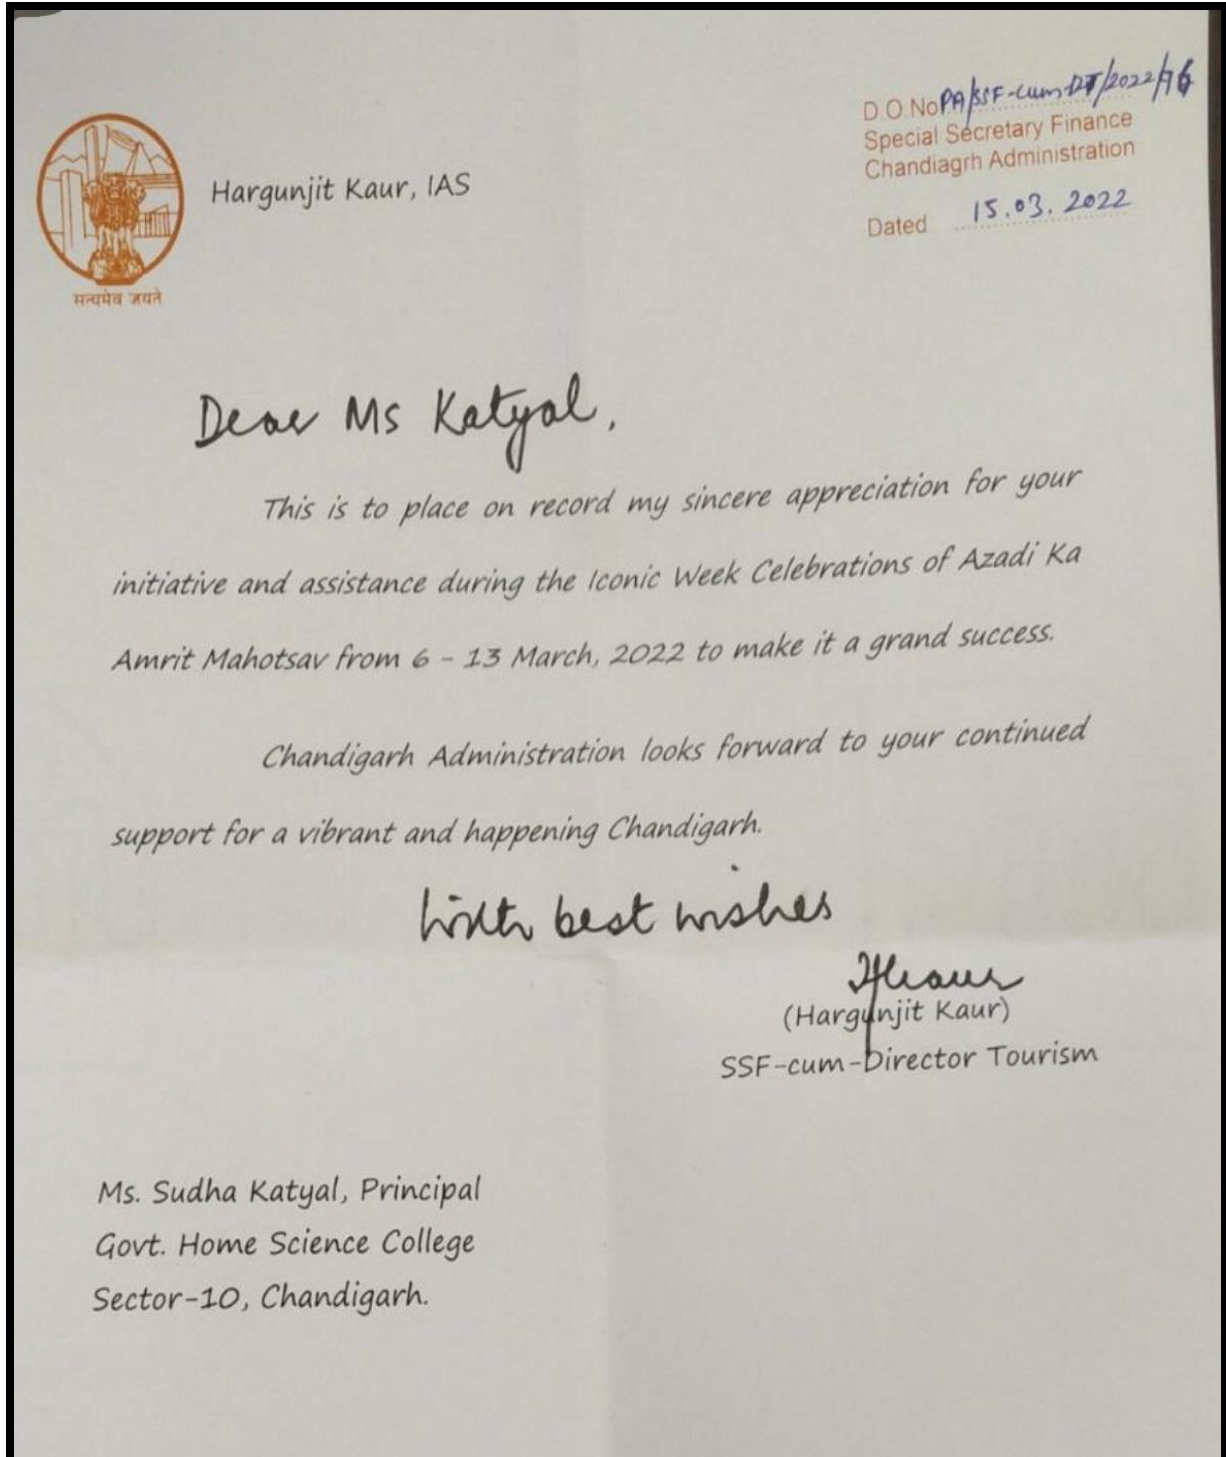 D.O.No PA/SSF-cum-DT/2022/76
Special Secretary Finance
Chandiagrh Administration
Dated 15.03.2022
Hargunjit Kaur, IAS
सत्यमेव जयते
Dear Ms Katyal,
This is to place on record my sincere appreciation for your
initiative and assistance during the Iconic Week Celebrations of Azadi Ka
Amrit Mahotsav from 6 - 13 March, 2022 to make it a grand success.
Chandigarh Administration looks forward to your continued
support for a vibrant and happening Chandigarh.
With best wishes
(Hargunjit Kaur)
SSF-cum-Director Tourism
Ms. Sudha Katyal, Principal
Govt. Home Science College
Sector-10, Chandigarh.